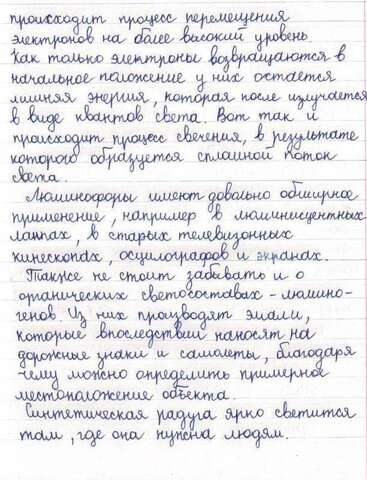 происходит процесс перемещения
электронов на более высокий уровень.
Как только электроны возвращаются в
начальное положение у них остается
лишняя энергия, которая после излучается
в виде квантов света. Вот так и
происходит процесс свечения, в результате
которого образуется сплошной поток
света.
Люминофоры имеют довольно обширное
применение, например в люминисцентных
лампах, в старых телевизонных
кинескопах, осцилографов и экранах.
Также не стоит забывать и о
органических светосоставах - люмино-
генов. Из них производят эмали,
которые впоследствии наносят на
дорожные знаки и самолеты, благодаря
чему можно определить примерное
местоположение объекта.
Синтетическая радуга ярко светится
там, где она нужна людям.